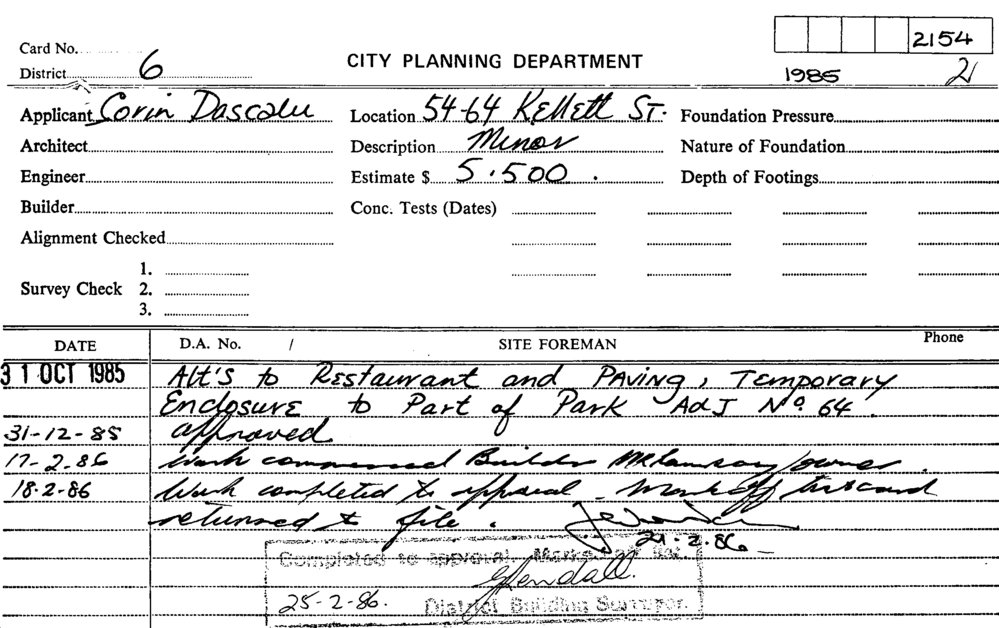 2154
Card No.
CITY PLANNING DEPARTMENT
District 6
1985 2
Applicant Corin Dascalu Location 54-64 Kellett St. Foundation Pressure
Architect Description Minor Nature of Foundation
Engineer Estimate $ 5.500. Depth of Footings
Builder Conc. Tests (Dates)
Alignment Checked
1.
Survey Check 2.
3.
DATE D.A. No. / SITE FOREMAN Phone
31 OCT 1985 Alt's to Restaurant and Paving, Temporary
Enclosure to Part of Park Adj No. 64.
31-12-85 approved
17-2-86 Work commenced Builder owner.
18-2-86 Work completed to approval. Mark off card
returned to file.
21-2-86
Completed to approval. Mark off list.
25-2-86. District Building Surveyor.